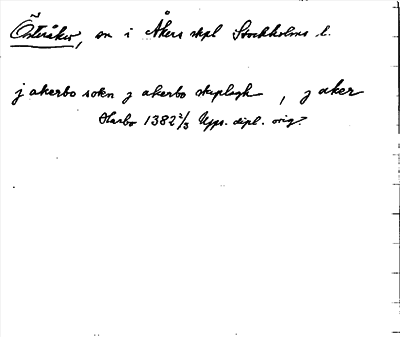 Österåker, sn i Åkers skpl Stockholms l.
j akerbo sokn j akerbo skeplagh , j aker
Skarbo 1382 2/3 Upps. dipl. orig.